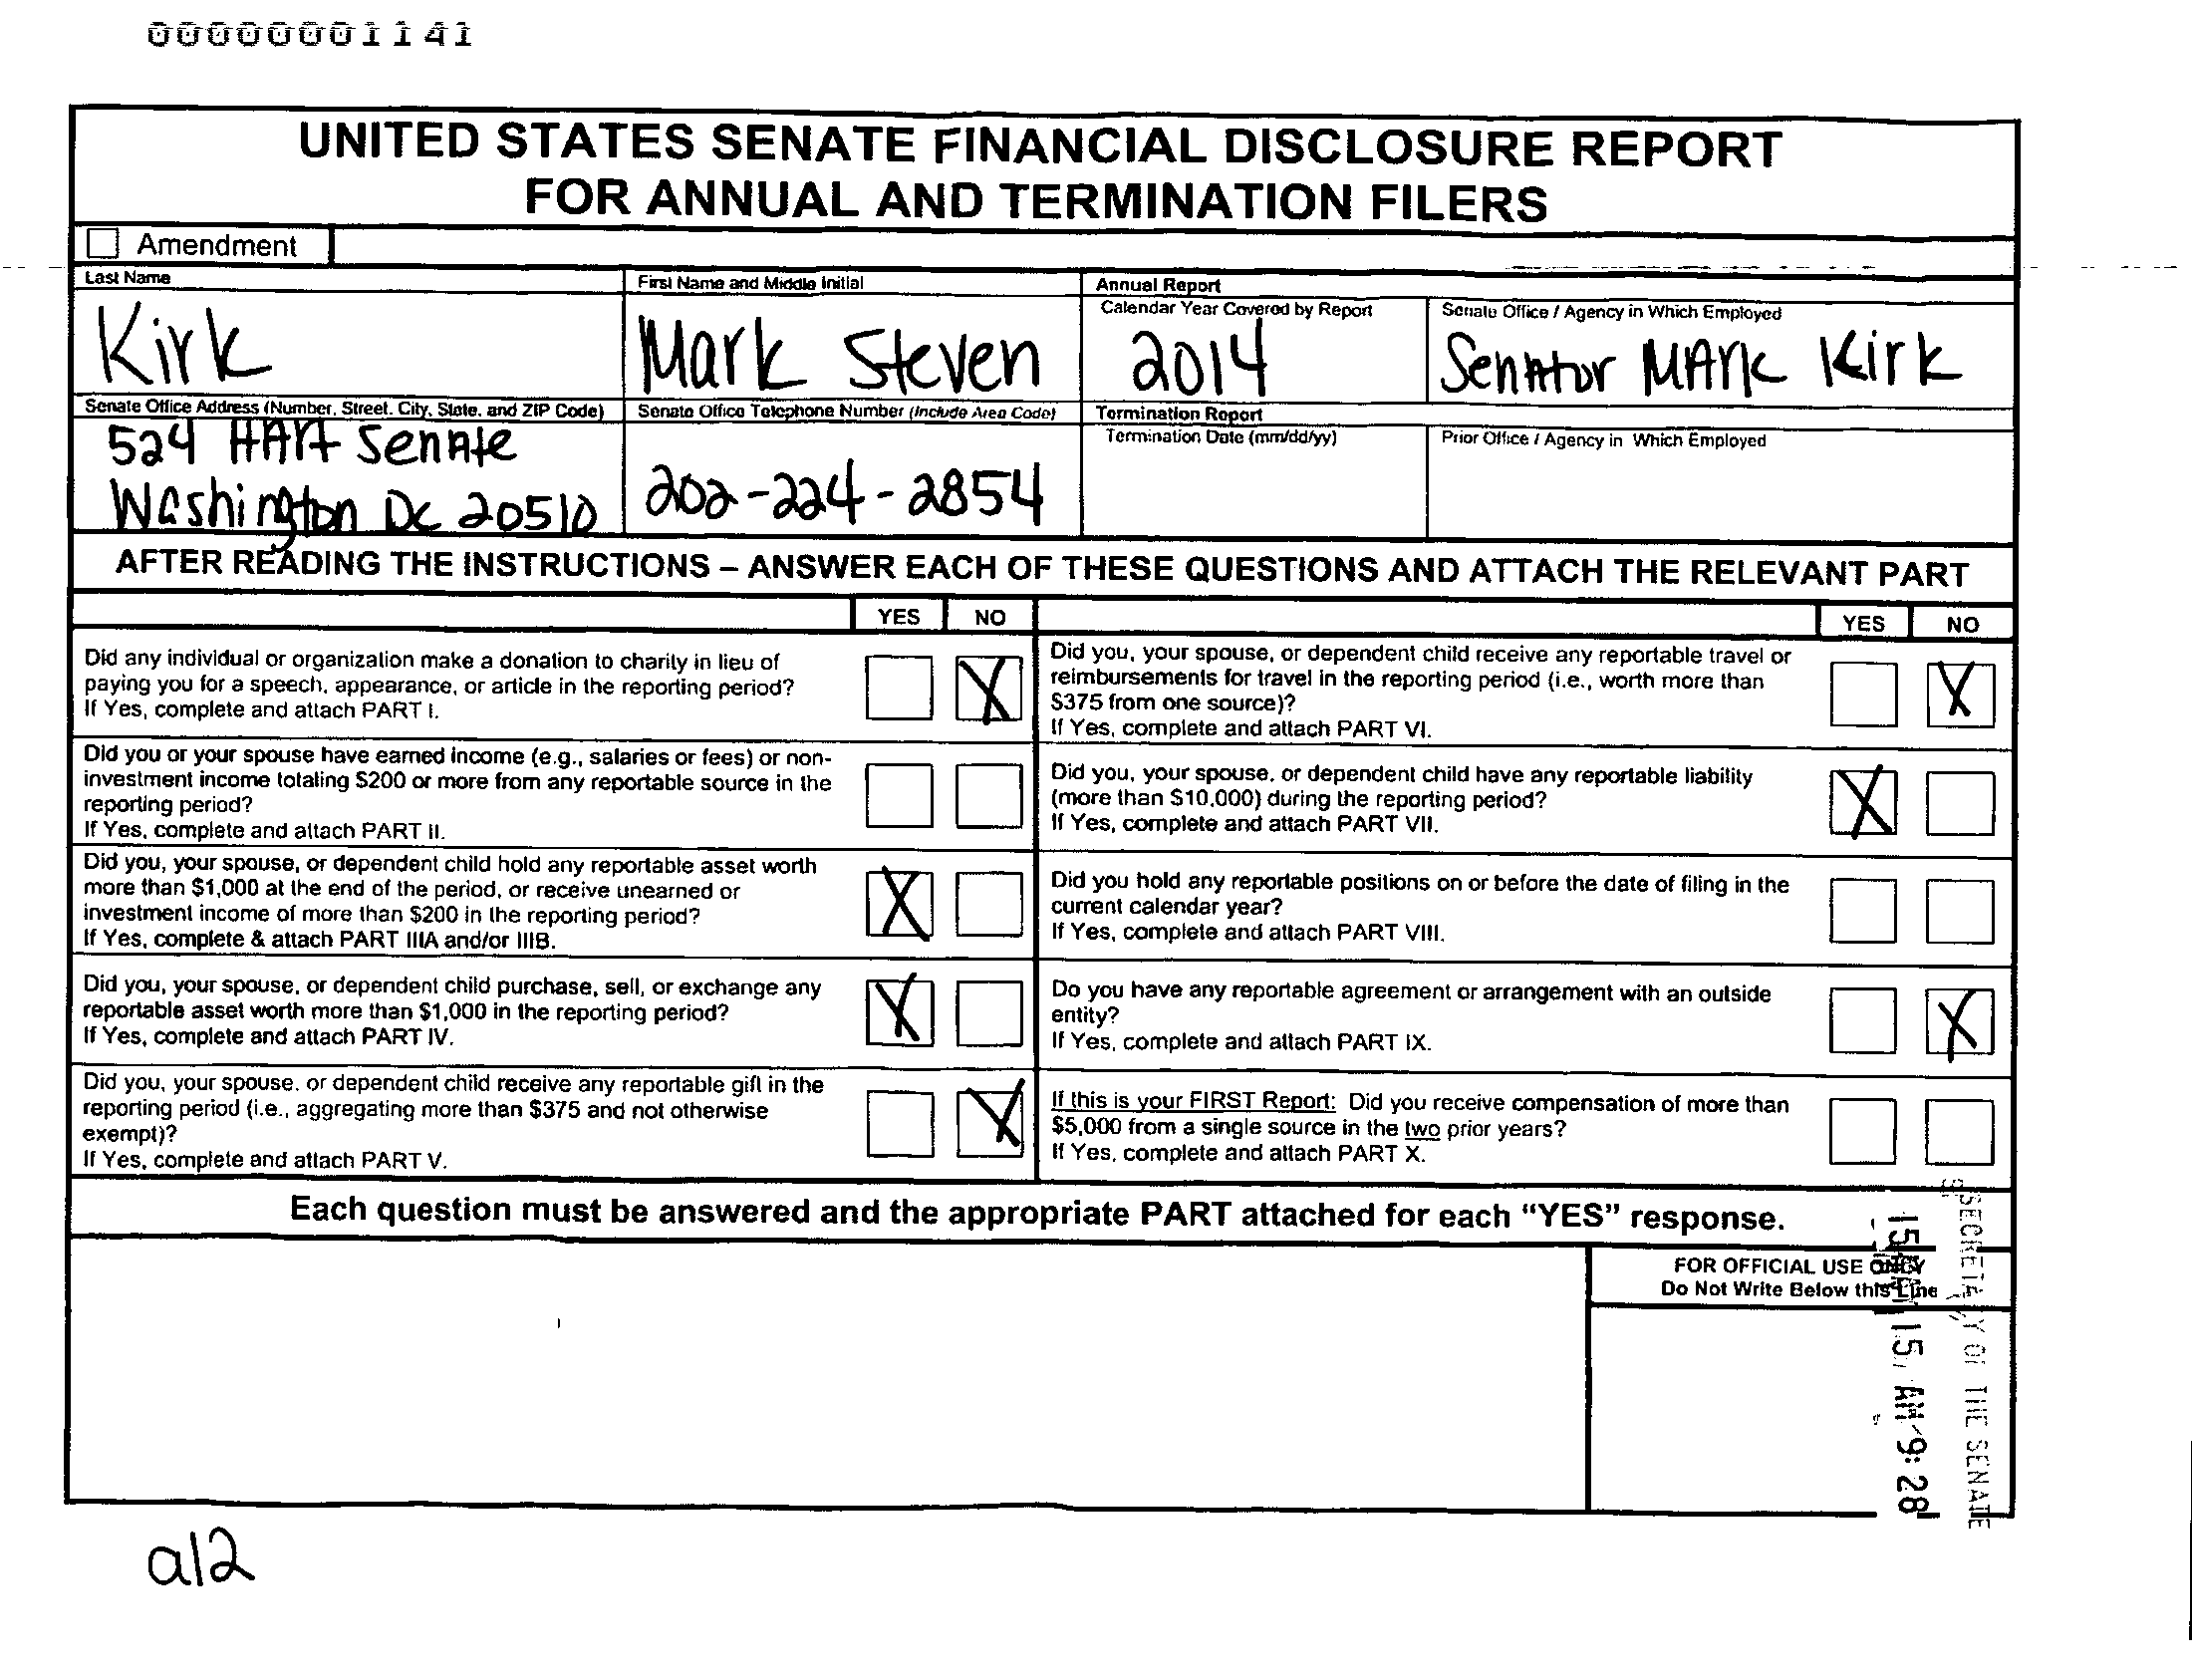 00000001141
UNITED STATES SENATE FINANCIAL DISCLOSURE REPORT
FOR ANNUAL AND TERMINATION FILERS
Amendment
Last Name
Kirk
First Name and Middle Initial
Mark Steven
Annual Report
Calendar Year Covered by Report
2014
Senate Office / Agency in Which Employed
Senator MArk Kirk
Senate Office Address (Number, Street, City, State, and ZIP Code)
524 HArt SenAte
Washington Dc 20510
Senate Office Telephone Number (Include Area Code)
202-224-2854
Termination Report
Termination Date (mm/dd/yy)
Prior Office / Agency in Which Employed
AFTER READING THE INSTRUCTIONS – ANSWER EACH OF THESE QUESTIONS AND ATTACH THE RELEVANT PART
YES NO
Did any individual or organization make a donation to charity in lieu of
paying you for a speech, appearance, or article in the reporting period?
If Yes, complete and attach PART I.
X
Did you or your spouse have earned income (e.g., salaries or fees) or non-
investment income totaling $200 or more from any reportable source in the
reporting period?
If Yes, complete and attach PART II.
Did you, your spouse, or dependent child hold any reportable asset worth
more than $1,000 at the end of the period, or receive unearned or
investment income of more than $200 in the reporting period?
If Yes, complete & attach PART IIIA and/or IIIB.
X
Did you, your spouse, or dependent child purchase, sell, or exchange any
reportable asset worth more than $1,000 in the reporting period?
If Yes, complete and attach PART IV.
X
Did you, your spouse, or dependent child receive any reportable gift in the
reporting period (i.e., aggregating more than $375 and not otherwise
exempt)?
If Yes, complete and attach PART V.
X
YES NO
Did you, your spouse, or dependent child receive any reportable travel or
reimbursements for travel in the reporting period (i.e., worth more than
$375 from one source)?
If Yes, complete and attach PART VI.
X
Did you, your spouse, or dependent child have any reportable liability
(more than $10,000) during the reporting period?
If Yes, complete and attach PART VII.
X
Did you hold any reportable positions on or before the date of filing in the
current calendar year?
If Yes, complete and attach PART VIII.
Do you have any reportable agreement or arrangement with an outside
entity?
If Yes, complete and attach PART IX.
X
If this is your FIRST Report: Did you receive compensation of more than
$5,000 from a single source in the two prior years?
If Yes, complete and attach PART X.
Each question must be answered and the appropriate PART attached for each “YES” response.
FOR OFFICIAL USE ONLY
Do Not Write Below this Line
SECRETARY OF THE SENATE
15 MAY 15 AM 9:28
a12